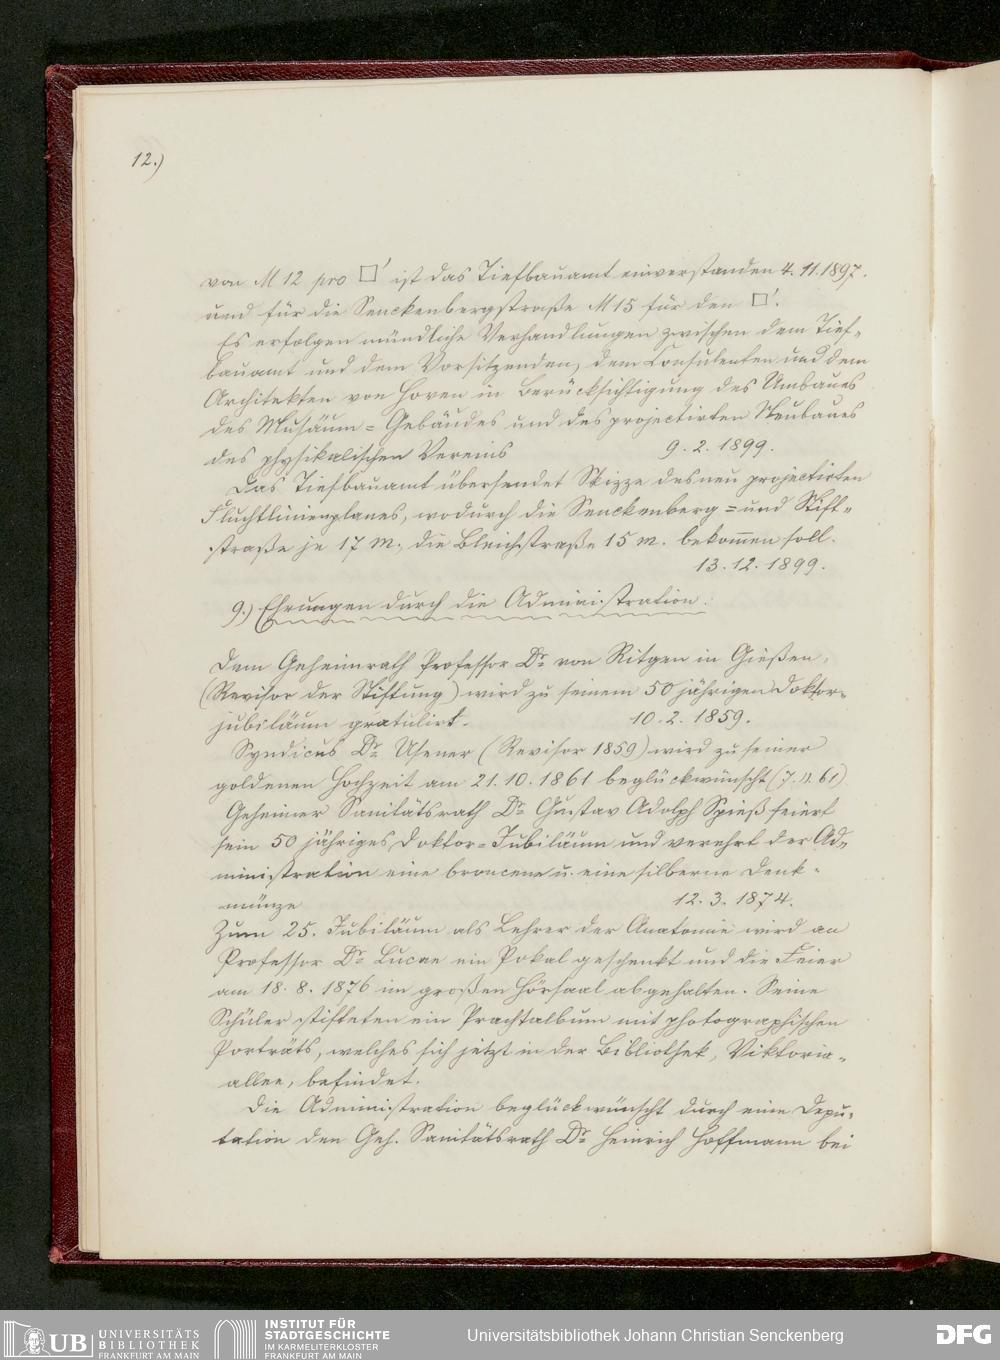 12.)
von M 12 pro □' ist das Tiefbauamt einverstanden 4.11.1897.
und für die Senckenbergstraße M 15 für den □'.
Es erfolgen mündliche Verhandlungen zwischen dem Tief-
bauamt und dem Vorsitzenden, dem Consulenten und dem
Architekten von Hoven in Berücksichtigung des Umbaues
des Musäum = Gebäudes und des projectirten Neubaues
des physikalischen Vereins 9. 2. 1899.
Das Tiefbauamt übersendet Skizze des neu projectirten
Fluchtlinienplanes, wodurch die Senckenberg = und Stift-
straße je 17 M., die Bleichstraße 15 m. bekom̄en soll.
13. 12. 1899.
9.) Ehrungen durch die Administration.
Dem Geheimrath Professor Dr von Ritgen in Gießen,
(Revisor der Stiftung) wird zu seinem 50 jährigen Doktor-
jubiläum gratulirt. 10. 2. 1859.
Syndicus Dr Usener (Revisor 1859) wird zu seiner
goldenen Hochzeit am 21. 10. 1861 beglückwünscht (7. 11. 61)
Geheimer Sanitätsrath Dr Gustav Adolph Spieß feiert
sein 50 jähriges Doktor = Jubiläum und verehrt der Ad-
ministration eine broncene u. eine silberne Denk-
münze 12. 3. 1874.
Zum 25. Jubiläum als Lehrer der Anatomie wird an
Professor Dr Lucae ein Pokal geschenkt und die Feier
am 18. 8. 1876 im großen Hörsaal abgehalten. Seine
Schüler stifteten ein Prachtalbum mit photographischen
Porträts, welches sich jetzt in der Bibliothek, Viktoria-
allee, befindet.
Die Administration beglückwünscht durch eine Depu-
tation den Geh. Sanitätsrath Dr Heinrich Hoffmann bei
UB UNIVERSITÄTS
BIBLIOTHEK
FRANKFURT AM MAIN
INSTITUT FÜR
STADTGESCHICHTE
IM KARMELITERKLOSTER
FRANKFURT AM MAIN
Universitätsbibliothek Johann Christian Senckenberg
DFG